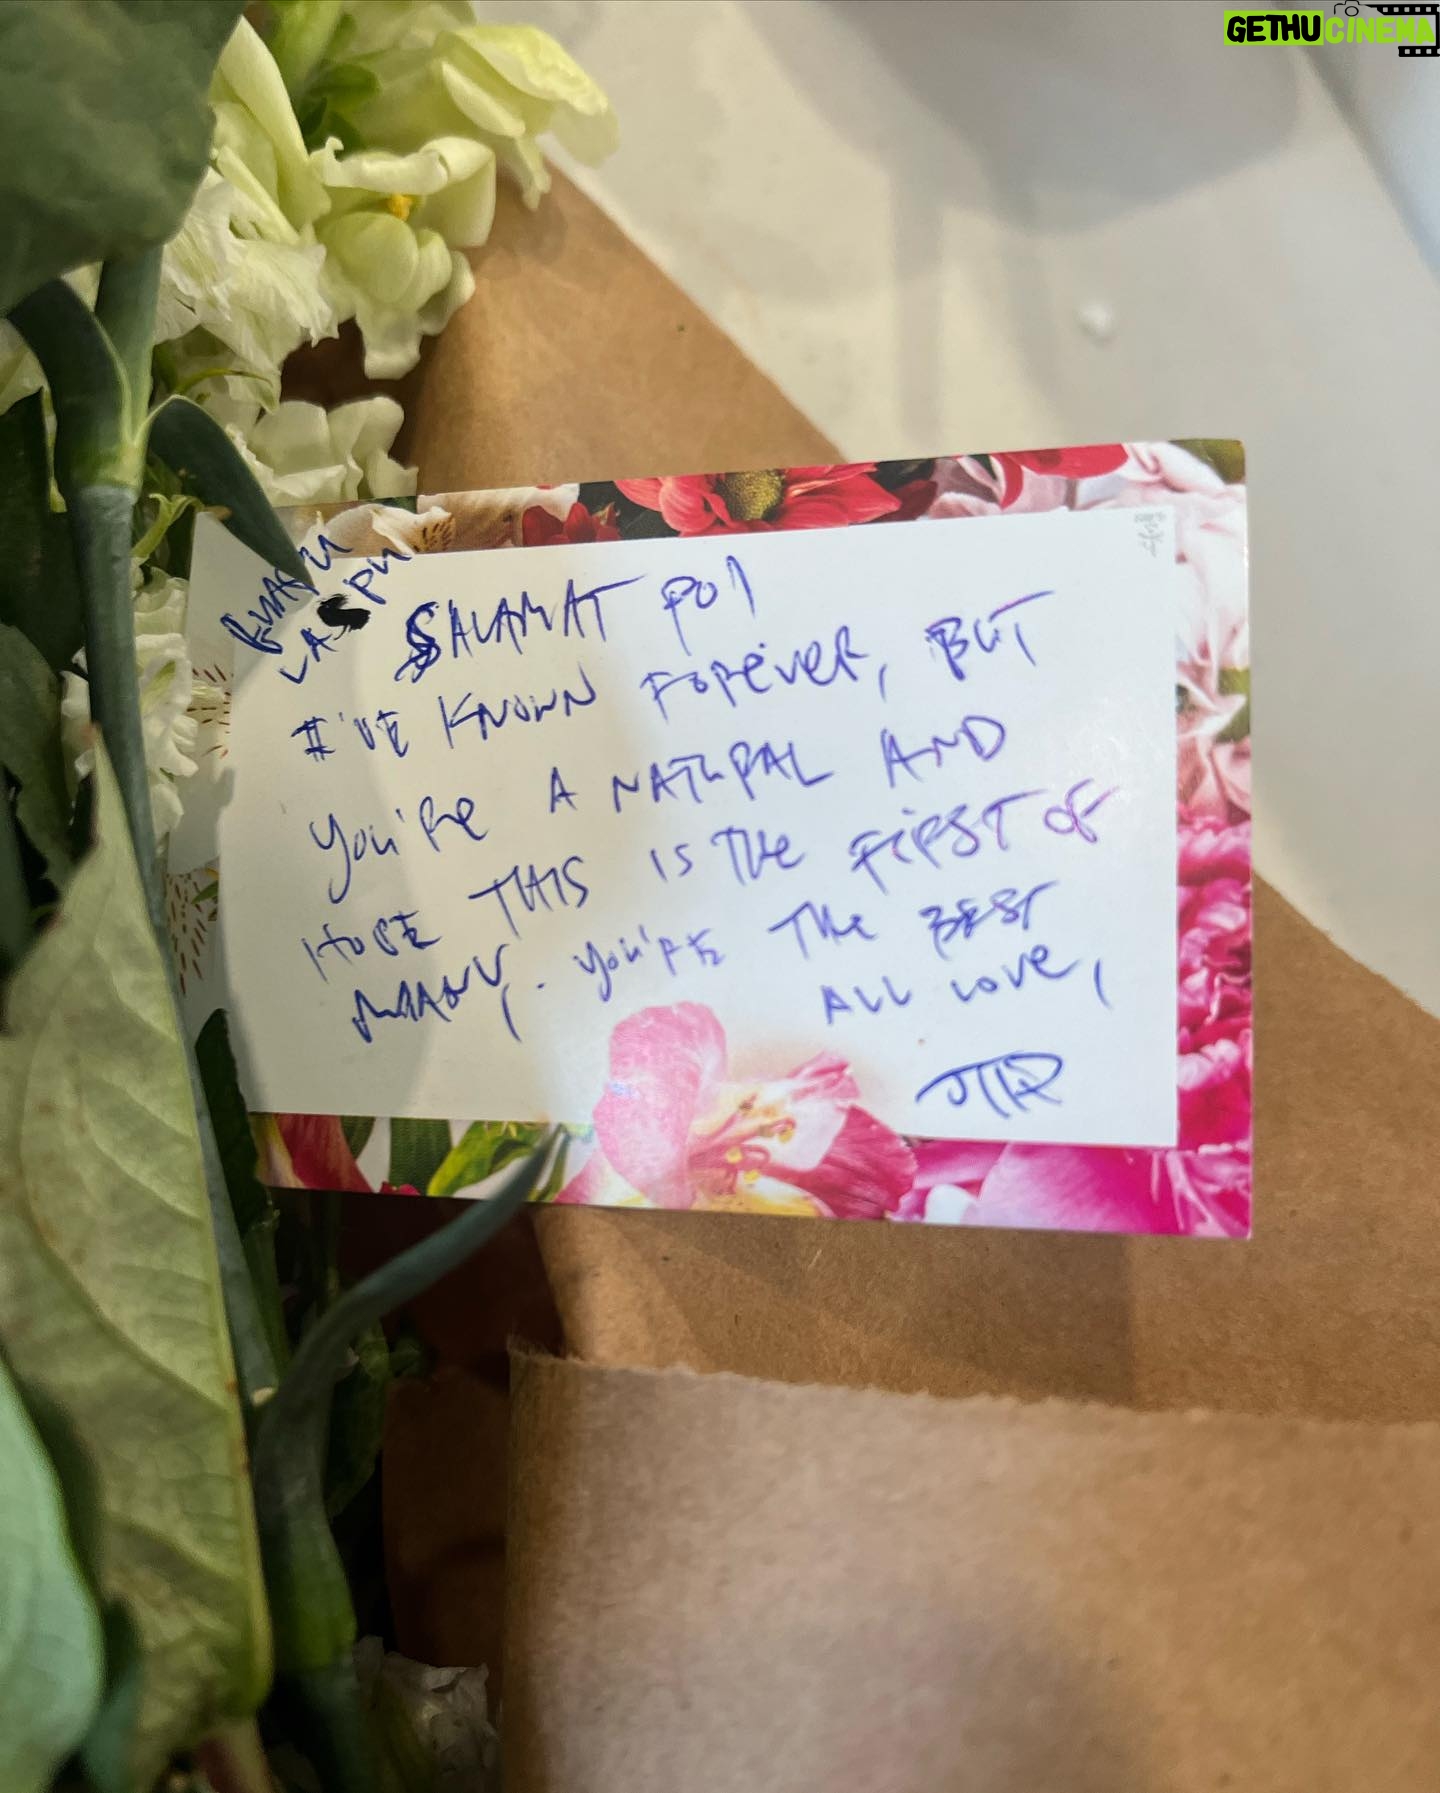 GETHUCINEMA
SALAMAT PO!
I'VE KNOWN FOREVER, BUT
YOU'RE A NATURAL AND
HOPE THIS IS THE FIRST OF
MANY. YOU'RE THE BEST
ALL LOVE,